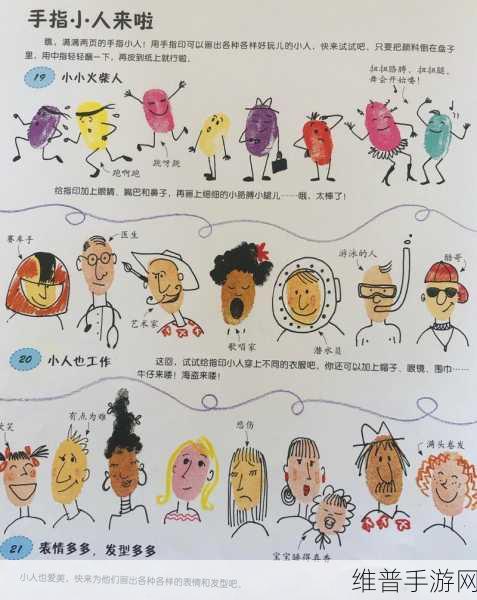 手指小人来啦
瞧，满满两页的手指小人！用手指印可以画出各种各样好玩儿的小人，快来试试吧。只要把颜料倒在盘子
里，用中指轻轻蘸一下，再按到纸上就行啦。
19 小小火柴人
扭扭胳膊，扭扭腿，
舞会开始喽！
跑啊跑
跳呀跳
给指印加上眼睛、嘴巴和鼻子，再画上细细的小胳膊小腿儿……哦，太棒了！
赛车手
医生
艺术家
歌唱家
潜水员
游泳的人
酷哥
20 小人也工作
这回，试试给指印小人穿上不同的衣服吧，你还可以加上帽子、眼镜、围巾……
牛仔来喽！海盗来喽！
大笑
有点为难
悲伤
满头卷发
宝宝睡得真香
21 表情多多，发型多多
小人也爱美，快来为他们画出各种各样的表情和发型吧。
维普手游网